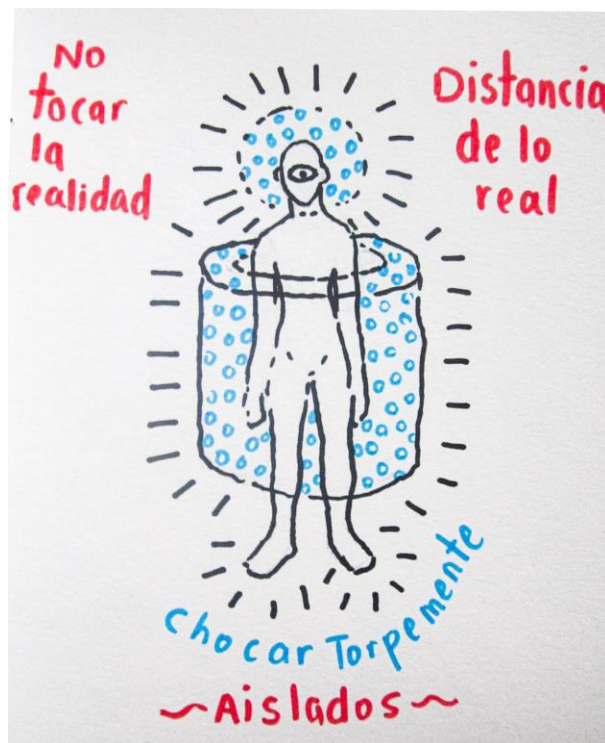 No
tocar
la
realidad
Distancia
de lo
real
chocar Torpemente
~Aislados~